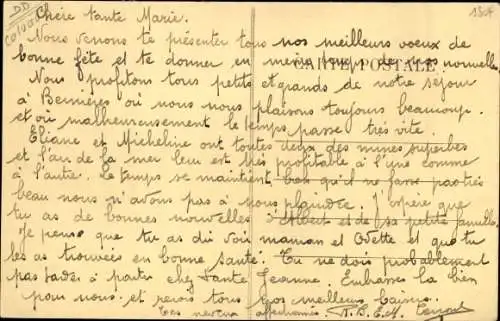 Chère tante Marie.
Nous venons te présenter tous nos meilleurs voeux de
bonne fête et te donner en même temps de nos nouvelles
CARTE POSTALE
Nous profitons tous petits et grands de notre séjour
à Bernières où nous nous plaisons toujours beaucoup.
et où malheureusement le temps passe très vite.
Eliane et Micheline ont toutes deux des mines superbes
et l'air de la mer leur est très profitable à l'une comme
à l'autre. Le temps se maintient, bien qu'il ne fasse pas très
beau nous n'avons pas à nous plaindre. J'espère que
tu as de bonnes nouvelles d'Albert et de sa petite famille.
Je pense que tu as dû voir maman et Odette et que tu
les as trouvées en bonne santé. Tu ne dois probablement
pas tarder à partir chez tante Jeanne. Embrasse la bien
pour nous. et reçois tous nos meilleurs baisers.
Tes neveux affectionnés